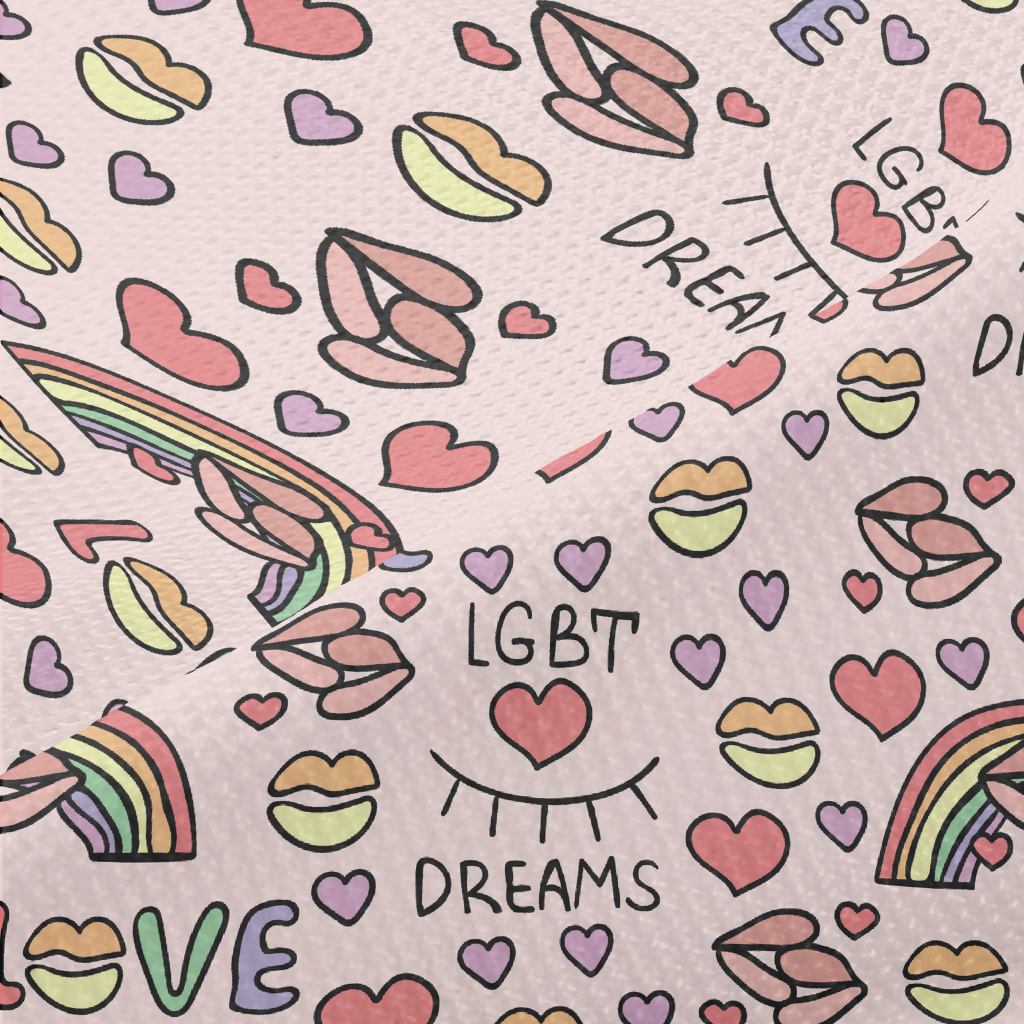 E
LGBT
DREAM
LGBT
DREAMS
LOVE